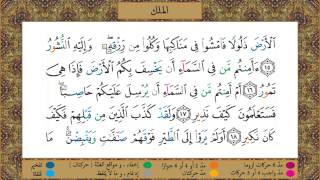 الملك
ٱلْأَرْضَ ذَلُولًا فَٱمْشُوا۟ فِى مَنَاكِبِهَا وَكُلُوا۟ مِن رِّزْقِهِۦ ۖ وَإِلَيْهِ ٱلنُّشُورُ
١٥ ءَأَمِنتُم مَّن فِى ٱلسَّمَآءِ أَن يَخْسِفَ بِكُمُ ٱلْأَرْضَ فَإِذَا هِىَ
تَمُورُ ١٦ أَمْ أَمِنتُم مَّن فِى ٱلسَّمَآءِ أَن يُرْسِلَ عَلَيْكُمْ حَاصِبًا ۖ
فَسَتَعْلَمُونَ كَيْفَ نَذِيرِ ١٧ وَلَقَدْ كَذَّبَ ٱلَّذِينَ مِن قَبْلِهِمْ فَكَيْفَ
كَانَ نَكِيرِ ١٨ أَوَلَمْ يَرَوْا۟ إِلَى ٱلطَّيْرِ فَوْقَهُمْ صَٰٓفَّٰتٍ وَيَقْبِضْنَ ۚ مَا